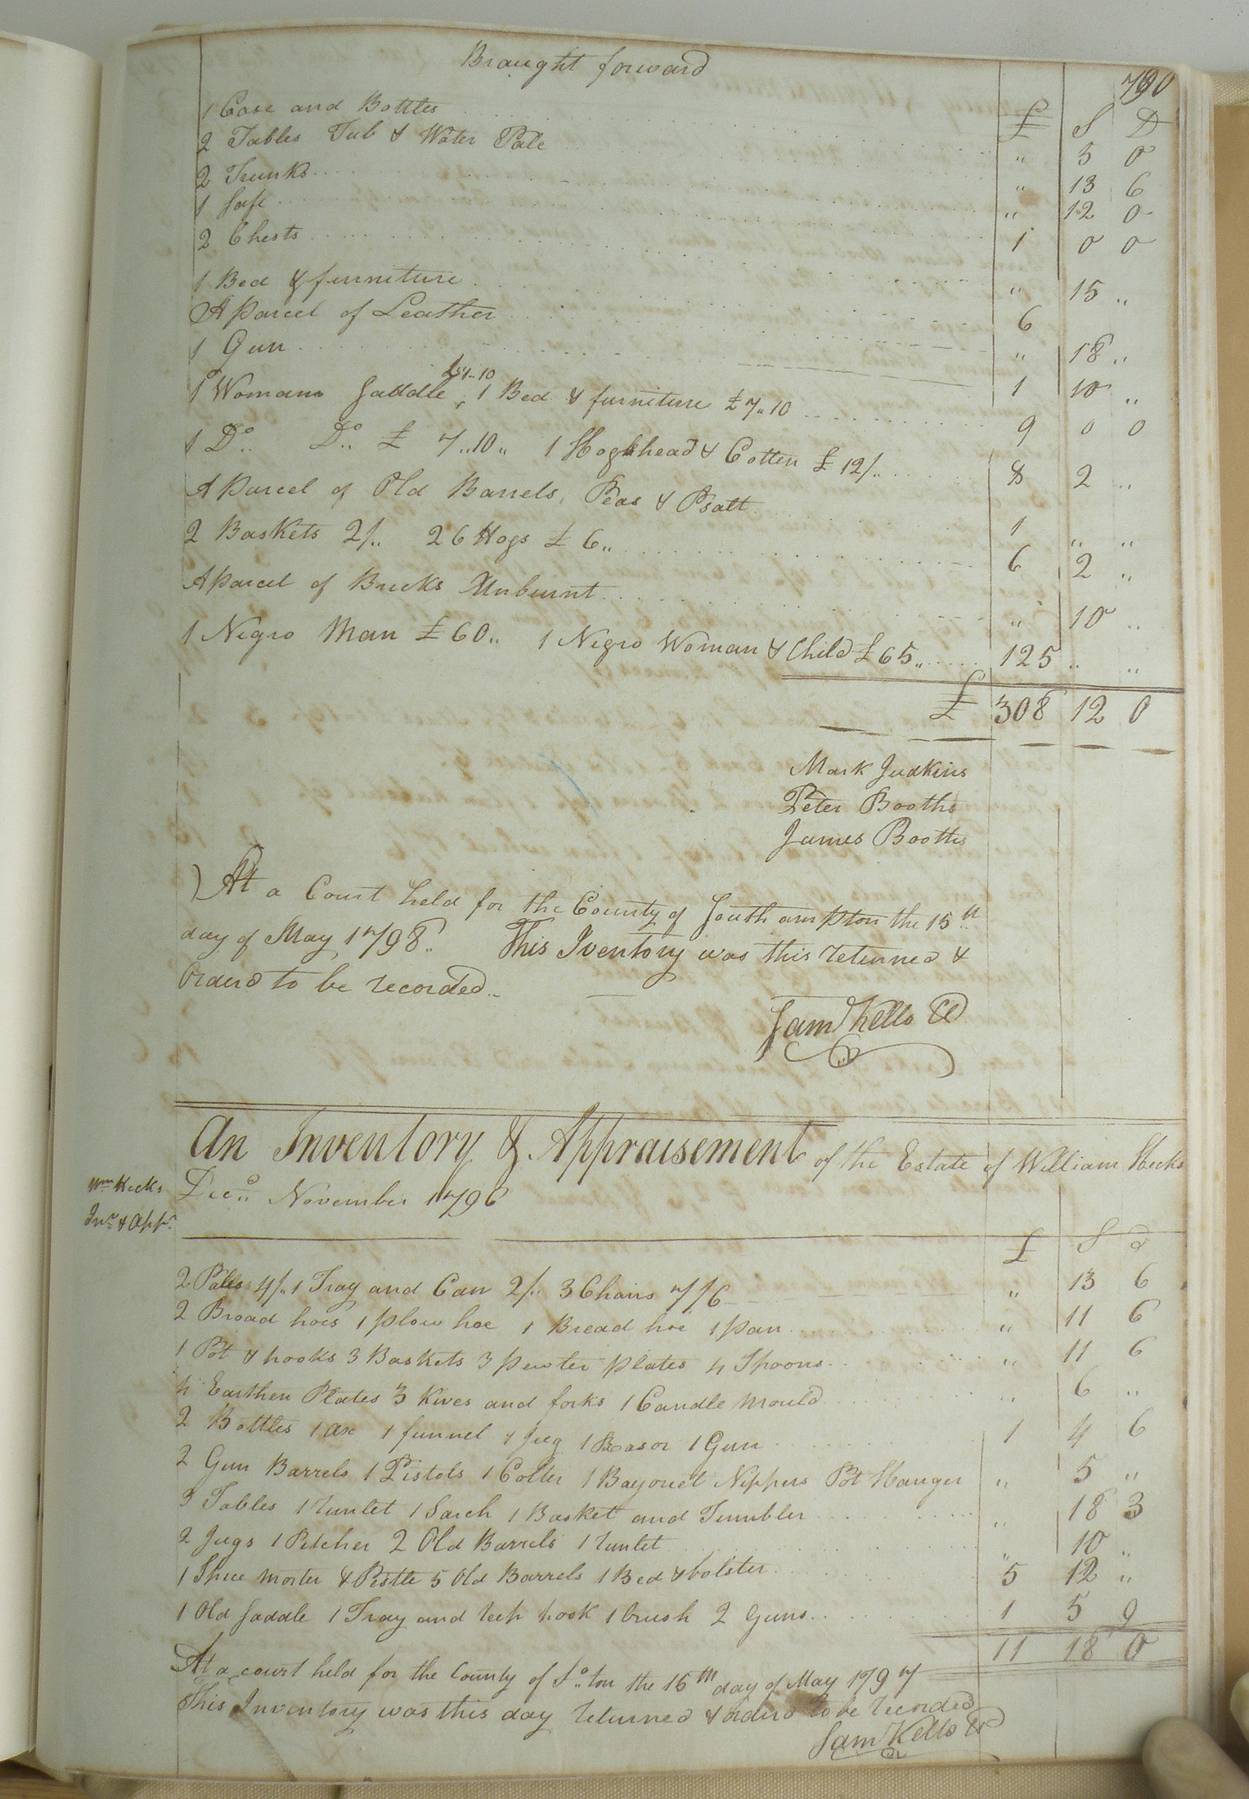 Braught forward 790
£ S D
1 Case and Bottles " 5 0
2 Tables Tub & Water Pale " 13 6
2 Trunks " 12 0
1 Safe 1 0 0
2 Chests " 15 "
1 Bed & furniture 6
A Parcel of Leather " 18 "
1 Gun 1 10 "
1 Womans Saddle £1-10, 1 Bed & furniture £7"10 9 0 0
1 Do Do £ 7"10" 1 Hogshead & Cotten £ 12/" 8 2 "
A Parcel of Old Barrels, Peas & 1 " "
2 Baskets 2/" 26 Hogs £ 6" 6 2 "
A Parcel of Bricks Unburnt " 10 "
1 Negro Man £60" 1 Negro Woman & Child £65" 125 " "
£ 308 12 0
Mark Judkins
Peter Booths
James Booths
At a Court held for the County of Southampton the 15th
day of May 1798" This Iventory was this returned &
Orderd to be recorded"
Saml Kello Cl
An Inventory & Appraisement of the Estate of William Hicks
Wm Hicks
Decd November 1796
Invr & Appt
£ S d
2 Pales 4/" 1 Tray and Can 2/" 3 Chairs 7/6 " 13 6
2 Broad hoes 1 plow hoe 1 Bread hoe 1 pan " 11 6
1 Pot & hooks 3 Baskets 3 pewter plates 4 Spoons " 11 6
4 Earthen Plates 3 Kives and forks 1 Candle mould " 6 "
2 Bottles 1 ax 1 funnel 1 Jug 1 Rasor 1 Gun 1 4 6
2 Gun Barrels 1 Pr Pistols 1 Colter 1 Bayonet Nippers Pot Hanger " 5 "
3 Tables 1 runlet 1 Sarch 1 Basket and Tumbler " 18 3
2 Jugs 1 Pitcher 2 Old Barrels 1 runlet " 10 "
1 Spice morter & Pistle 5 Old Barrels 1 Bed & bolster 5 12 "
1 Old Saddle 1 Tray and reep hook 1 brush 2 Guns 1 5 9
11 18 0
At a court held for the County of So ton the 15th day of May 1797
This Inventory was this day returned & orderd to be recorded
Saml Kello Cl